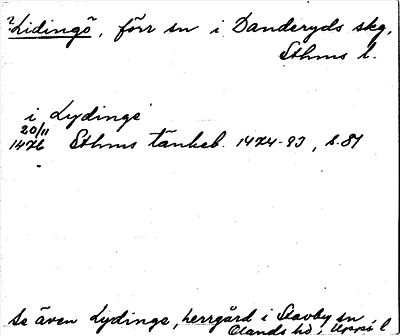 ?Lidingö, förr sn i Danderyds skg,
Sthms l.
i Lydinge
20/11
1476 Sthms tänkeb. 1474-83, s. 81
Se även Lydinge, herrgård i Stavby sn
Olands hd, Upps. l